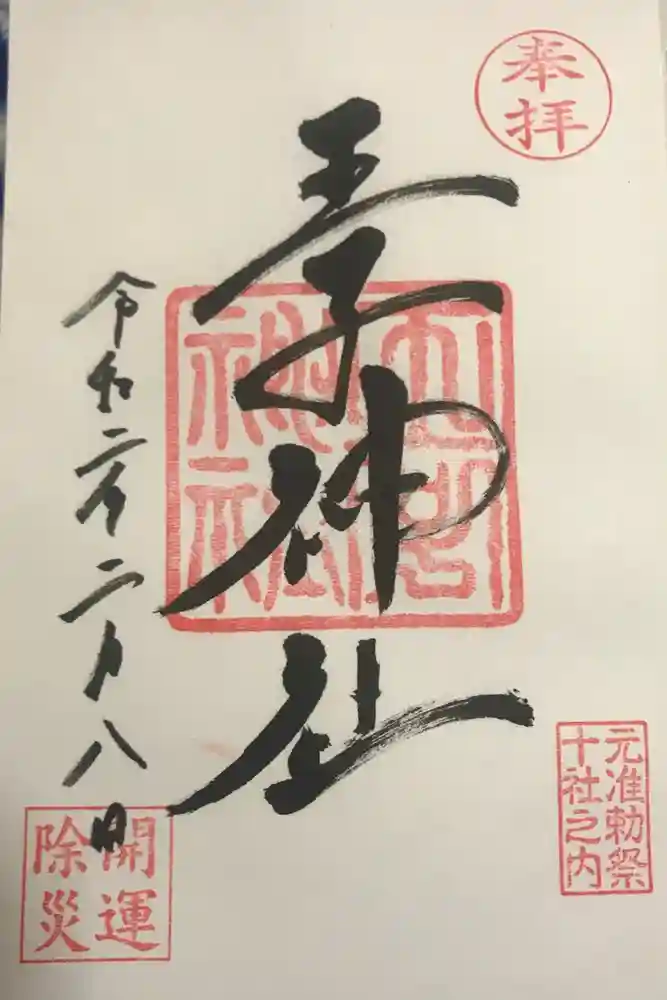 奉拝
王子神社
王子神社
元准勅祭
十社之内
令和二年二月八日
開運
除災